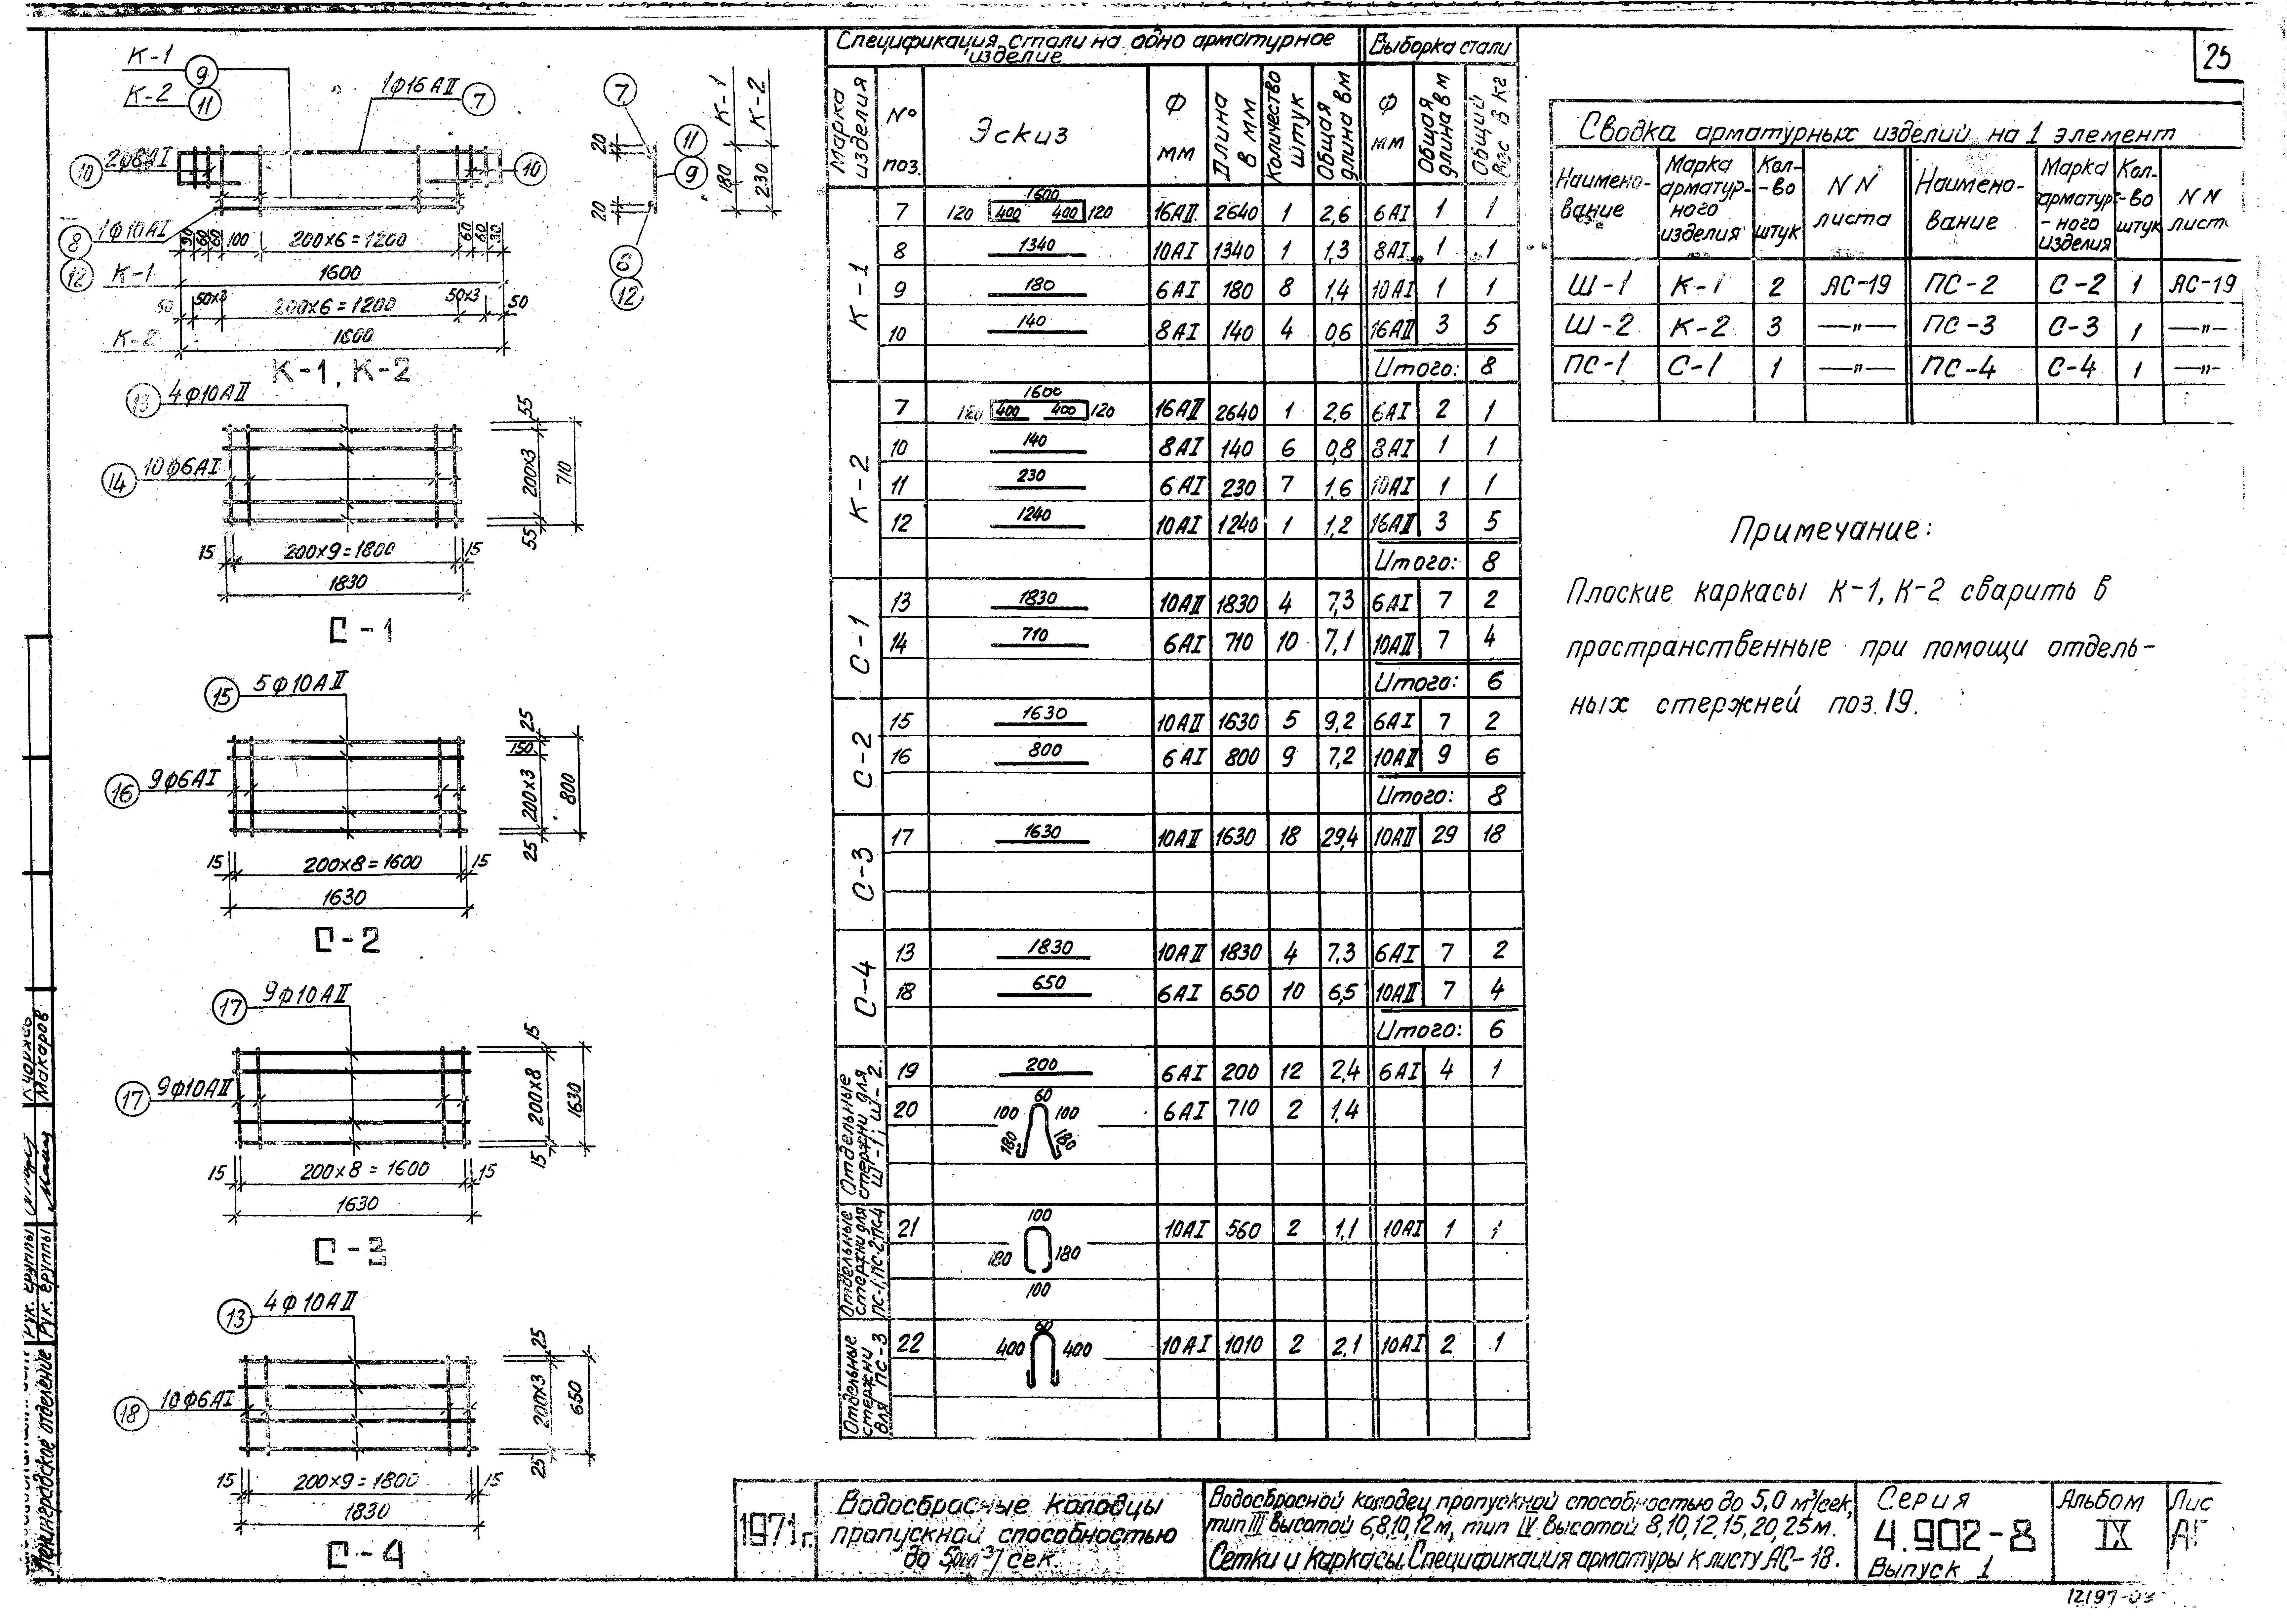 25
К-1
9
К-2
11
1ф16АII 7
10 2ф8АI
10
1ф10АI
8
12
30 60 60 60 100 200х6=1200 60 60 30
К-1 1600
50 50х3 200х6=1200 50х3 50
К-2 1600
К-1, К-2
7
20
11
9
20
8
12
180 К-1
230 К-2
13 4ф10АII
14 10ф6АI
55
200х3
710
55
15 200х9=1800 15
1830
С-1
15 5ф10АII
16 9ф6АI
25
150
200х3
800
25
15 200х8=1600 15
1630
С-2
17 9ф10АII
17 9ф10АII
15
200х8
1630
15
15 200х8=1600 15
1630
С-3
13 4ф10АII
18 10ф6АI
25
200х3
650
25
15 200х9=1800 15
1830
С-4
Спецификация стали на одно арматурное изделие
Выборка стали
Марка изделия
№ поз.
Эскиз
Ф мм
Длина в мм
Количество штук
Общая длина в м
Ф мм
Общая длина в м
Общий вес в кг
К-1
7 120 400 1600 400 120 16АII 2640 1 2,6 6АI 1 1
8 1340 10АI 1340 1 1,3 8АI 1 1
9 180 6АI 180 8 1,4 10АI 1 1
10 140 8АI 140 4 0,6 16АII 3 5
Итого: 8
К-2
7 120 400 1600 400 120 16АII 2640 1 2,6 6АI 2 1
10 140 8АI 140 6 0,8 8АI 1 1
11 230 6АI 230 7 1,6 10АI 1 1
12 1240 10АI 1240 1 1,2 16АII 3 5
Итого: 8
С-1
13 1830 10АII 1830 4 7,3 6АI 7 2
14 710 6АI 710 10 7,1 10АII 7 4
Итого: 6
С-2
15 1630 10АII 1630 5 9,2 6АI 7 2
16 800 6АI 800 9 7,2 10АII 9 6
Итого: 8
С-3
17 1630 10АII 1630 18 29,4 10АII 29 18
С-4
13 1830 10АII 1830 4 7,3 6АI 7 2
18 650 6АI 650 10 6,5 10АII 7 4
Итого: 6
Отдельные стержни для Ш-1; Ш-2.
19 200 6АI 200 12 2,4 6АI 4 1
20 60 100 100 180 180 6АI 710 2 1,4
Отдельные стержни для ПС-1; ПС-2; ПС-4
21 100 180 180 100 10АI 560 2 1,1 10АI 1 1
Отдельные стержни для ПС-3
22 60 400 400 10АI 1010 2 2,1 10АI 2 1
Сводка арматурных изделий на 1 элемент
Наименование
Марка арматурного изделия
Кол-во штук
NN листа
Наименование
Марка арматурного изделия
Кол-во штук
NN лист
Ш-1 К-1 2 АС-19 ПС-2 С-2 1 АС-19
Ш-2 К-2 3 —"— ПС-3 С-3 1 —"—
ПС-1 С-1 1 —"— ПС-4 С-4 1 —"—
Примечание:
Плоские каркасы К-1, К-2 сварить в
пространственные при помощи отдель-
ных стержней поз.19.
Ленинградское отделение
Рук. группы
Рук. группы
Макаров
1971г.
Водосбросные колодцы
пропускной способностью
до 5,0 м³/сек.
Водосбросной колодец пропускной способностью до 5,0 м³/сек,
тип III высотой 6,8,10,12м, тип IV высотой 8,10,12,15,20,25м.
Сетки и каркасы. Спецификация арматуры к листу АС-18.
Серия
4.902-8
Выпуск 1
Альбом
IX
Лис
АС
12197-03